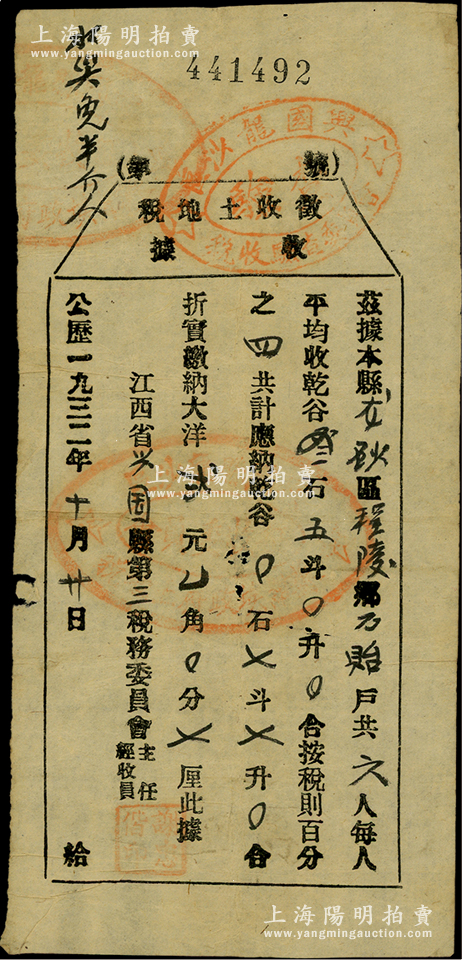 上海陽明拍賣
www.yangmingauction.com
441492
號)
(第
徵收土地稅
收據
茲據本縣龙砂區程陵鄉乃貽戶共六人每人
平均收乾谷叁石五斗〇升〇合按稅則百分
之四共計應納乾谷〇石〤斗〤升〇合
折實繳納大洋弍元乙角〇分〤厘此據
江西省兴国縣第三稅務委員會
主任
經收員
公歷一九三二年十月廿日
給
上海陽明拍賣
www.yangmingauction.com
上海陽明拍賣
www.yangmingauction.com